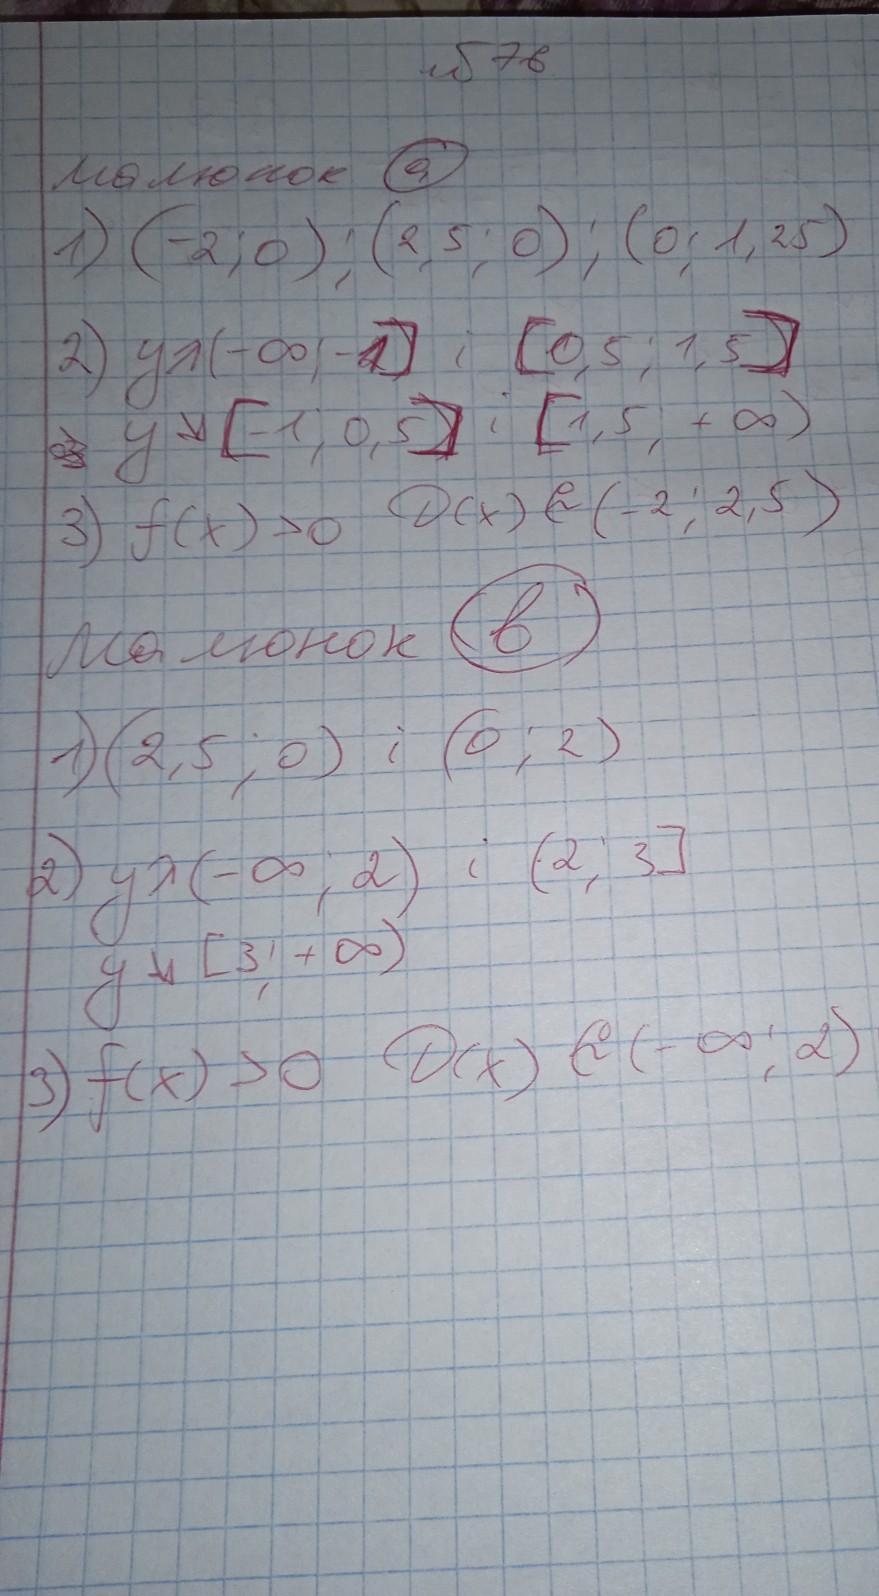 № 76
малюнок а
1) (-2; 0); (2,5; 0); (0; 1,25)
2) y↗(-∞; -1] i [0,5; 1,5]
y↘[-1; 0,5] i [1,5; +∞)
3) f(x)>0 D(x) ∈ (-2; 2,5)
Малюнок в
1) (2,5; 0) i (0; 2)
2) y↗(-∞; 2) i (2; 3]
y↘ [3; +∞)
3) f(x) >0 D(x) ∈ (-∞; 2)